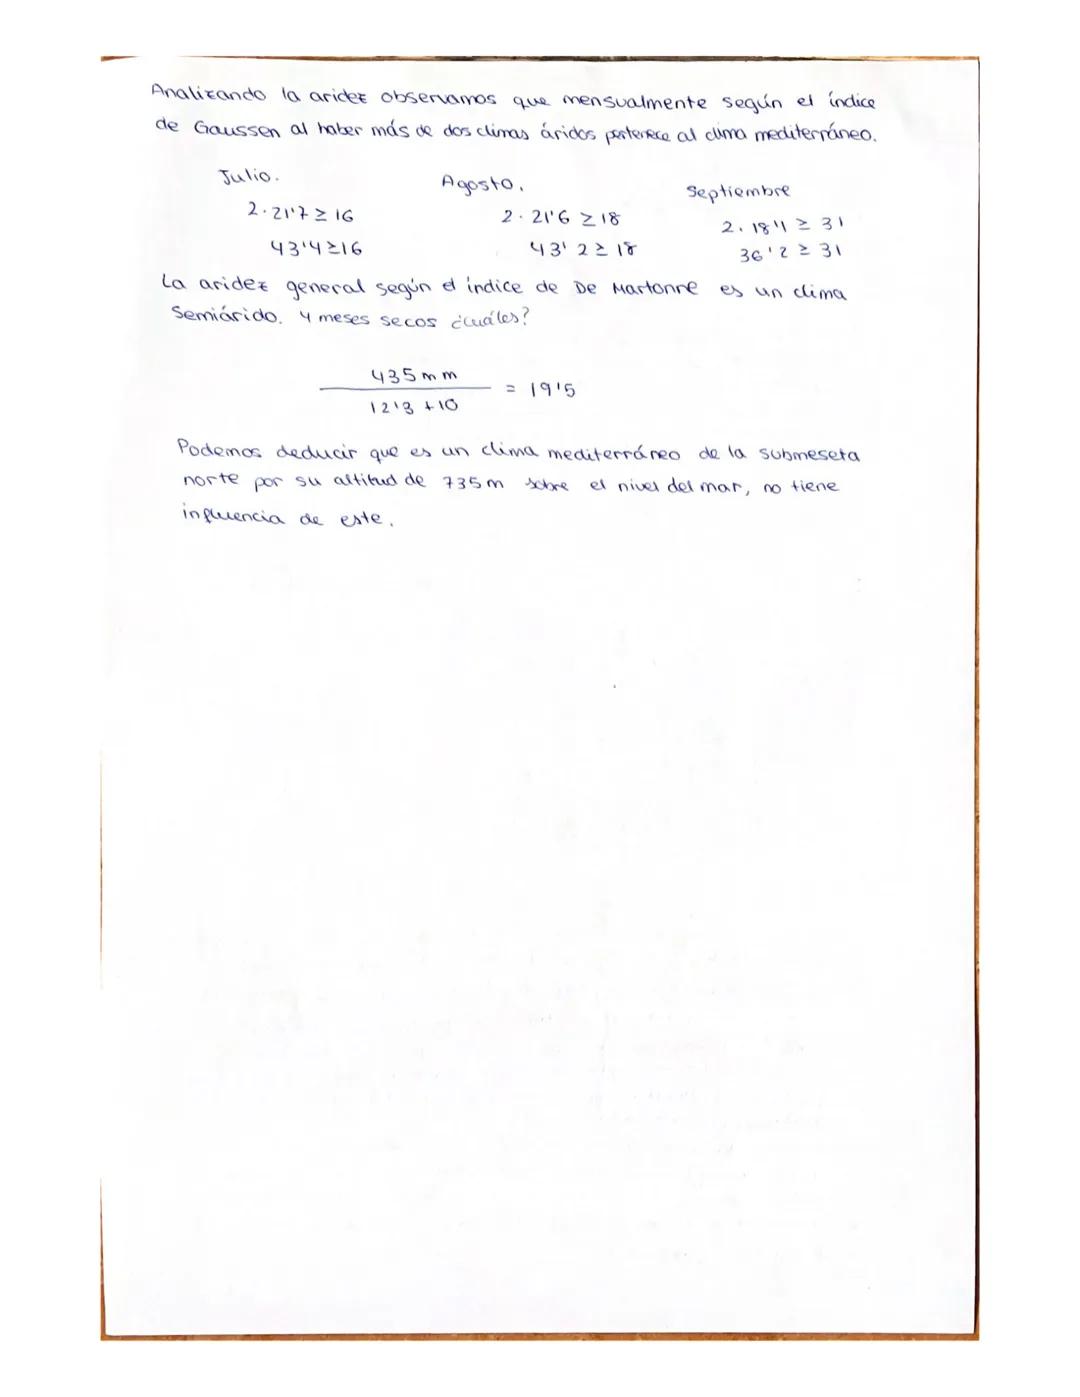 Analizando la aridez observamos que mensualmente según el índice
de Gaussen al haber más de dos climas áridos pertenece al clima mediterráneo.
Julio. Agosto. Septiembre
2·21'7 ≥ 16 2·21'6 ≥ 18 2·18'1 ≥ 31
43'4 ≥ 16 43'2 ≥ 18 36'2 ≥ 31
La aridez general según el índice de De Martonne es un clima
Semiárido. 4 meses secos ¿cuáles?
435 mm
= 19'5
12'3 + 10
Podemos deducir que es un clima mediterráneo de la submeseta
norte por su altitud de 735m sobre el nivel del mar, no tiene
influencia de este.